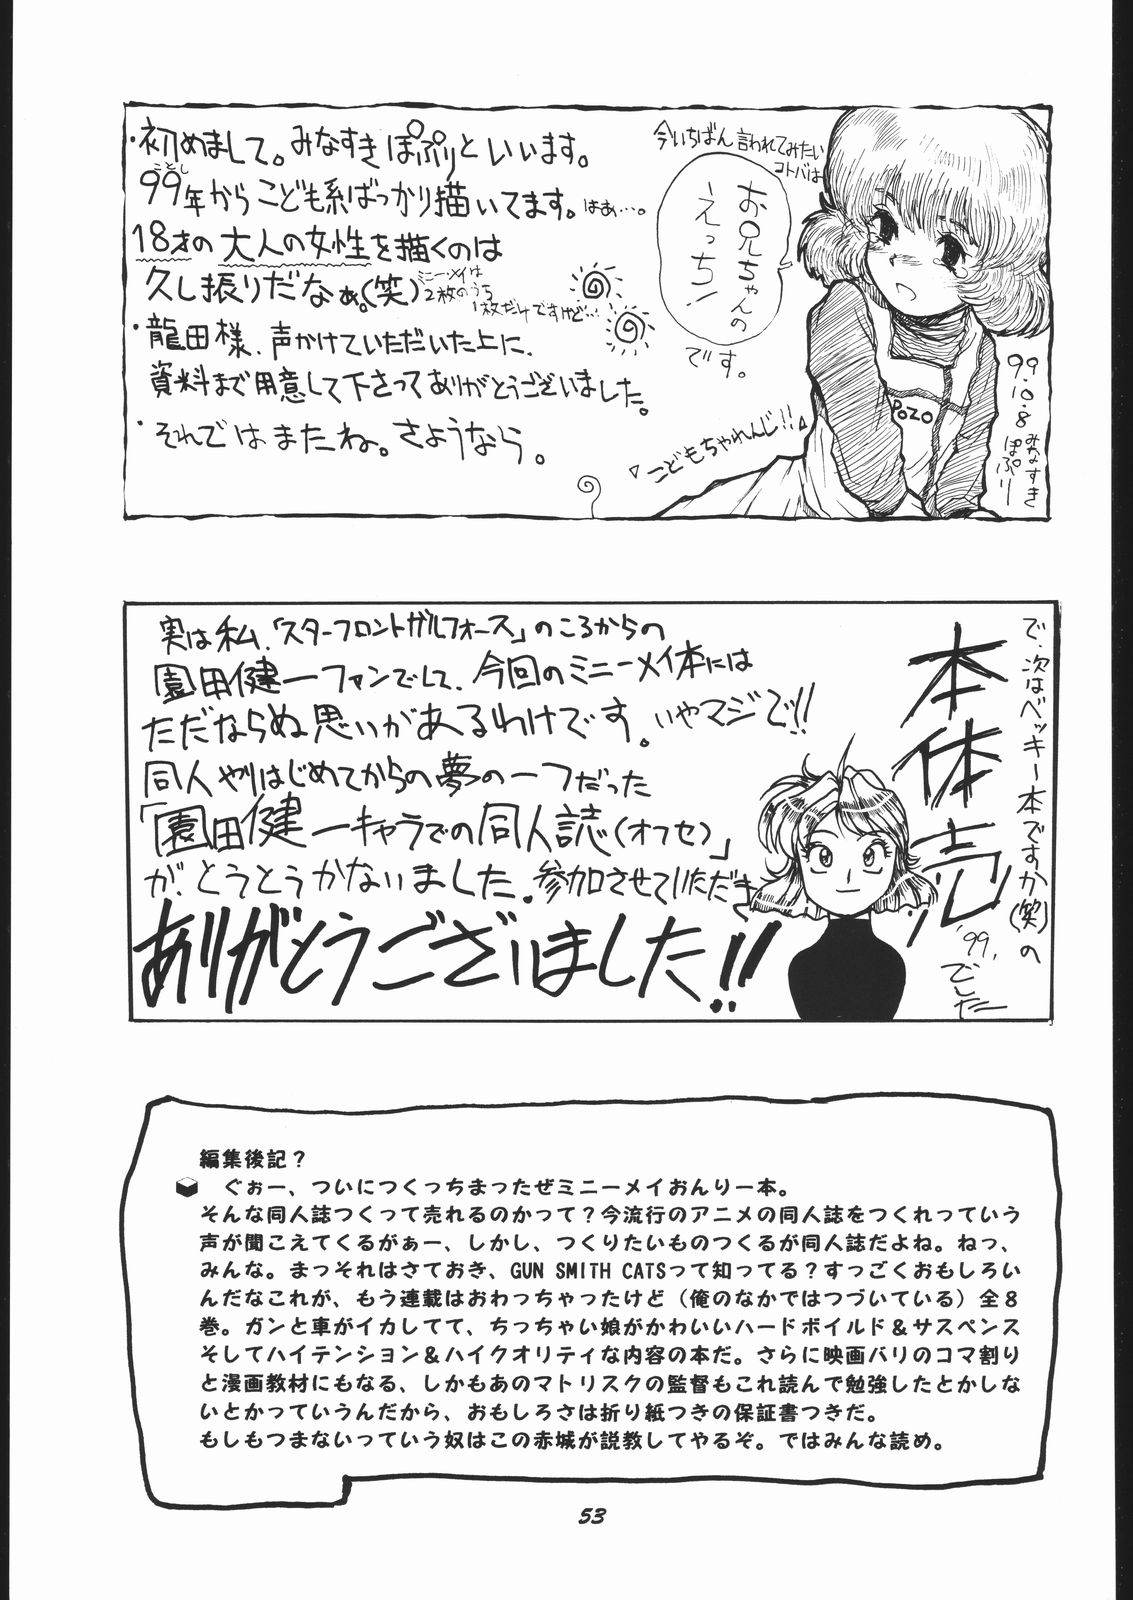 ・初めまして。みなすきぽぷりといいます。
99年からこども系ばっかり描いてます。はぁ…。
ことし
18才の大人の女性を描くのは
久し振りだなぁ。(笑)
ミニーメイは
2枚のうち
1枚だけですけど…
・龍田様、声かけていただいた上に、
資料まで用意して下さってありがとうございました。
・それではまたね。さようなら。
今いちばん言われてみたい
コトバは
お兄ちゃんの
えっち!
です。
こどもちゃれんじ!!
POZO
99.10.8
みなすき
ぽぷり
実は私、「スターフロントガルフォース」のころからの
園田健一ファンでして、今回のミニーメイ本には
ただならぬ思いがあるわけです。いやマジで!!
同人やりはじめてからの夢の一つだった
「園田健一キャラでの同人誌(オフセ)」
が、とうとうかないました。参加させていただき
ありがとうございました!!
で、次はベッキー本ですか(笑)の
本体売
'99,
でした
編集後記?
ぐぉー、ついにつくっちまったぜミニーメイおんりー本。
そんな同人誌つくって売れるのかって?今流行のアニメの同人誌をつくれっていう
声が聞こえてくるがぁー、しかし、つくりたいものつくるが同人誌だよね。ねっ、
みんな。まっそれはさておき、GUN SMITH CATSって知ってる?すっごくおもしろい
んだなこれが、もう連載はおわっちゃったけど(俺のなかではつづいている)全8
巻。ガンと車がイカしてて、ちっちゃい娘がかわいいハードボイルド&サスペンス
そしてハイテンション&ハイクオリティな内容の本だ。さらに映画バリのコマ割り
と漫画教材にもなる、しかもあのマトリスクの監督もこれ読んで勉強したとかしな
いとかっていうんだから、おもしろさは折り紙つきの保証書つきだ。
もしもつまないっていう奴はこの赤城が説教してやるぞ。ではみんな読め。
53